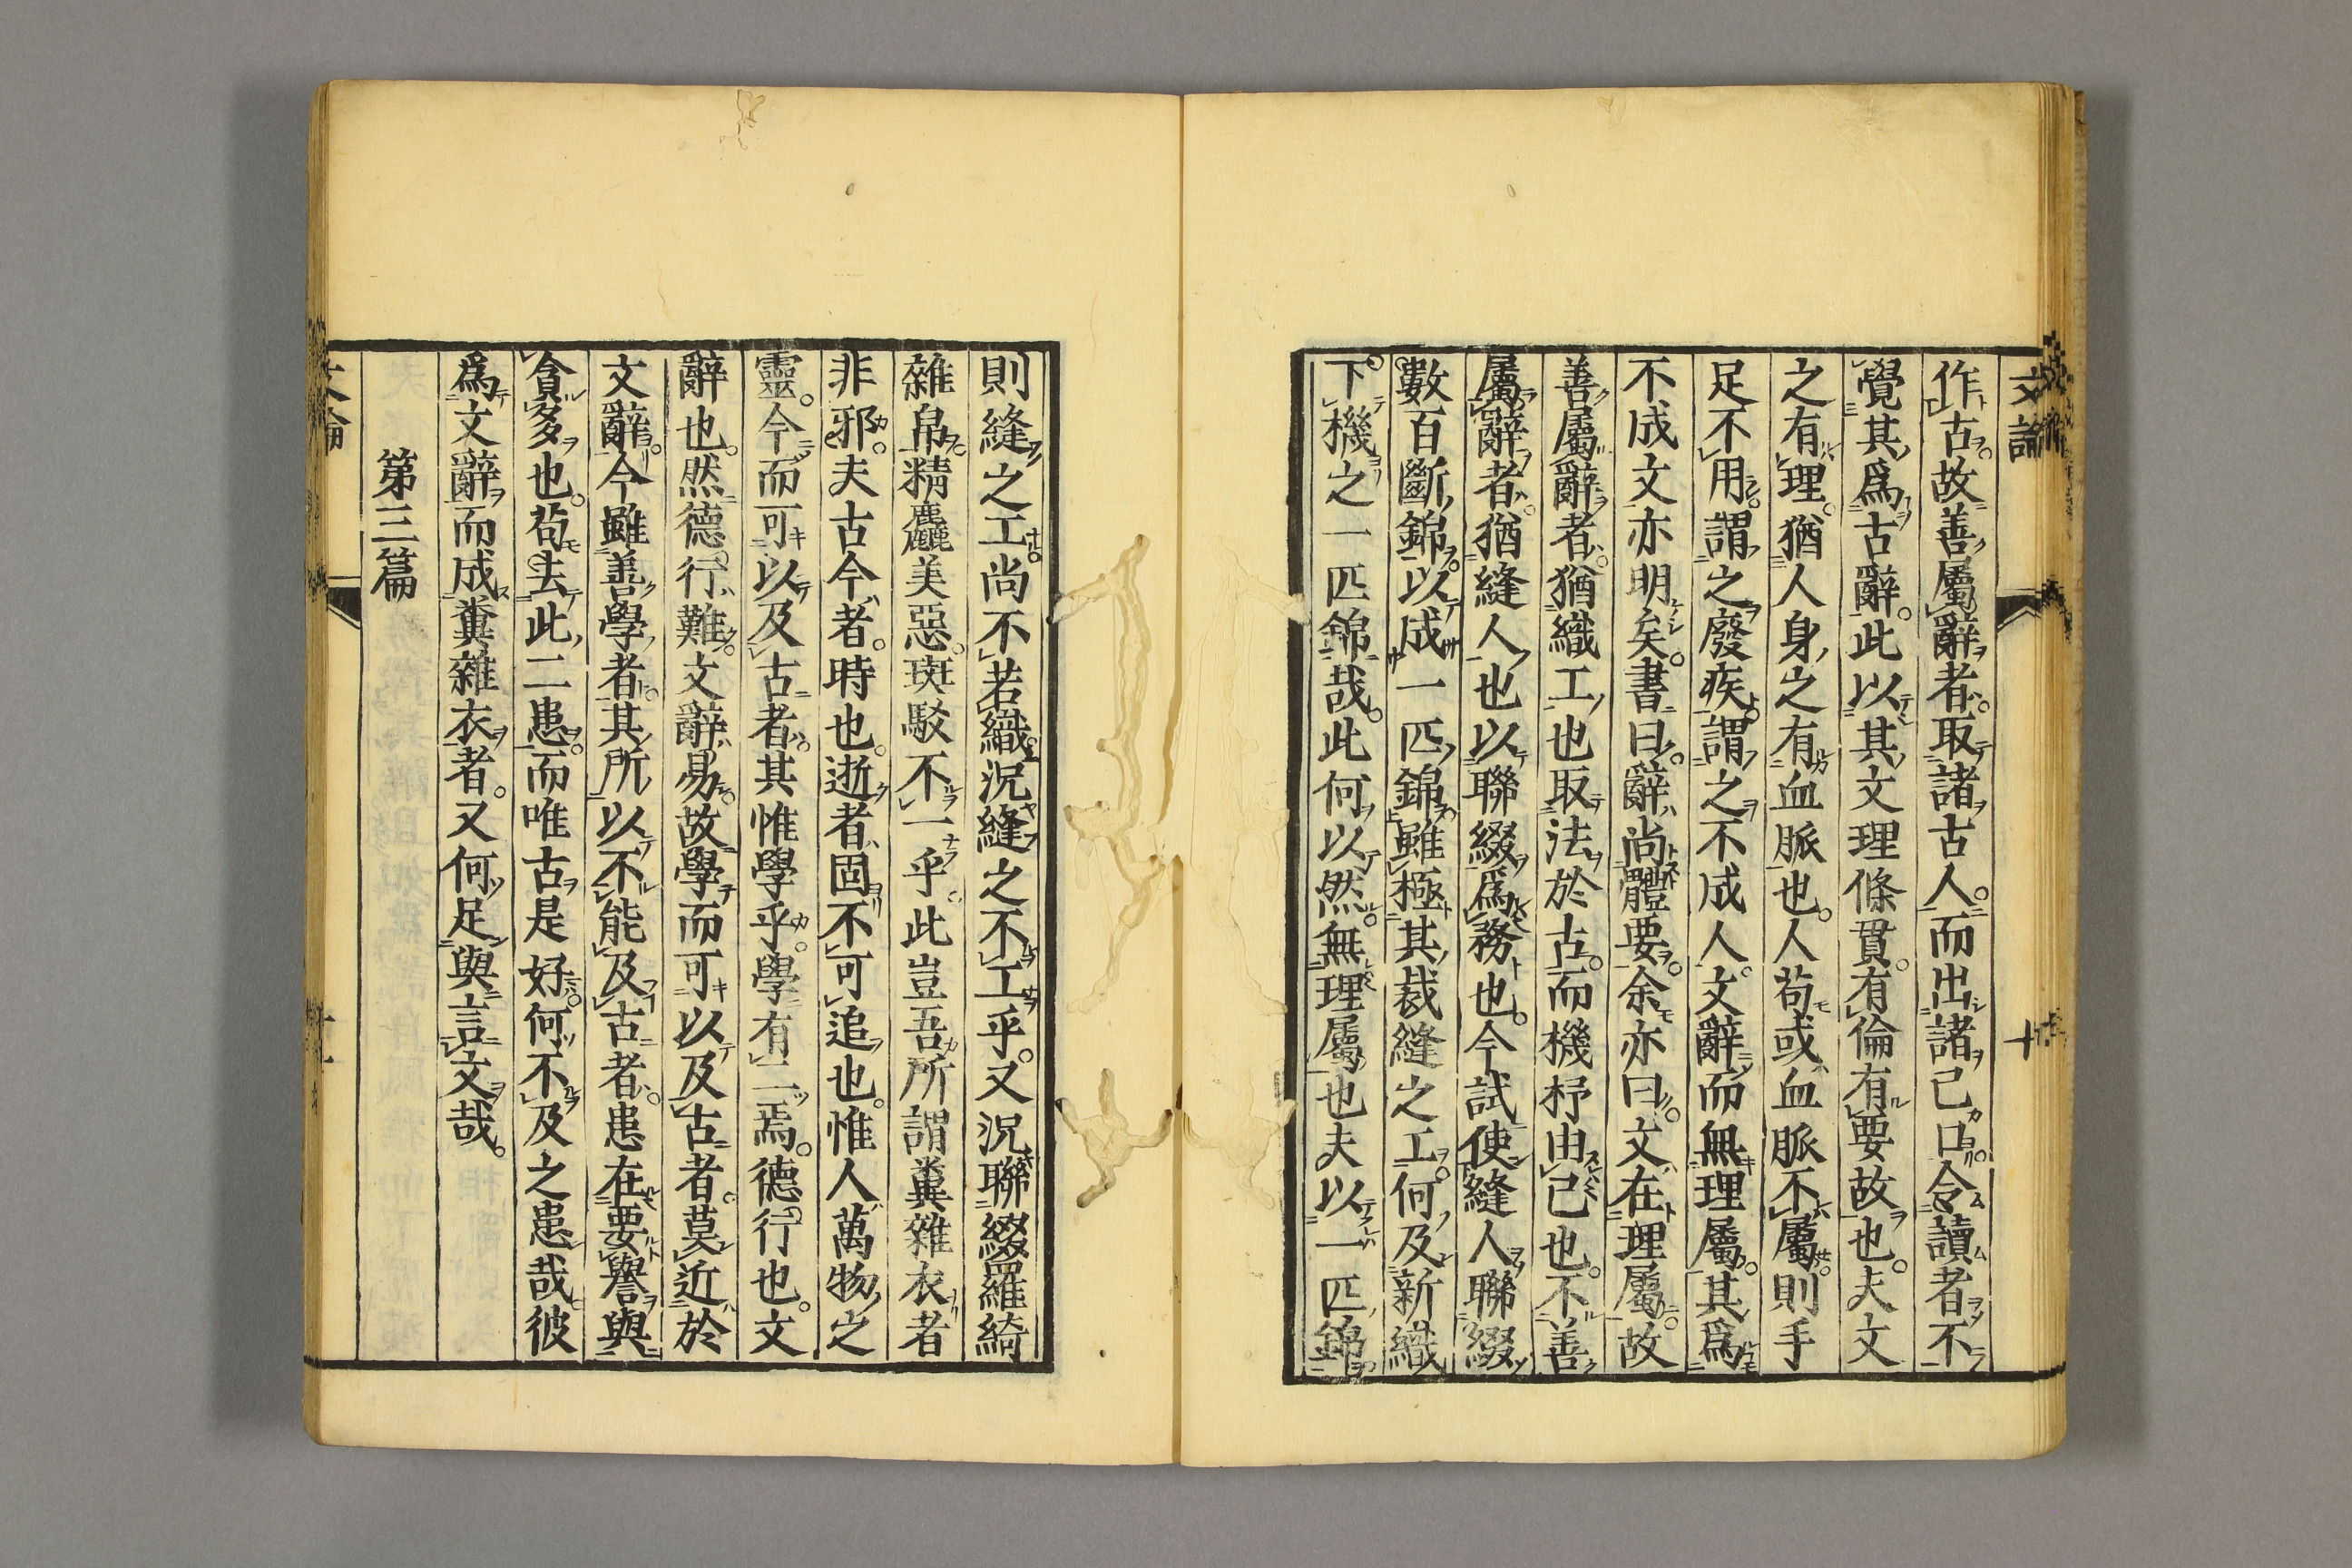 文論
十
作古故善屬辭者取諸古人而出諸己口令讀者不
覺其爲古辭此以其文理條貫有倫有要故也夫文
之有理猶人身之有血脈也人苟或血脈不屬則手
足不用謂之廢疾謂之不成人文辭而無理屬其爲
不成文亦明矣書曰辭尚體要余亦曰文在理屬故
善屬辭者猶織工也取法於古而機杼由己也不善
屬辭者猶縫人也以聯綴爲務也今試使縫人聯綴
數百斷錦以成一匹錦雖極其裁縫之工何及新織
下機之一匹錦哉此何以然無理屬也夫以一匹錦
則縫之工尚不若織況縫之不工乎又況聯綴羅綺
雜帛精麤美惡斑駁不一乎此豈吾所謂糞雜衣者
非邪夫古今者時也逝者固不可追也惟人萬物之
靈今而可以及古者其惟學乎學有二焉德行也文
辭也然德行難文辭易故學而可以及古者莫近於
文辭今雖善學者其所以不能及古者患在要譽與
貪多也苟去此二患而唯古是好何不及之患哉彼
爲文辭而成糞雜衣者又何足與言文哉
第三篇